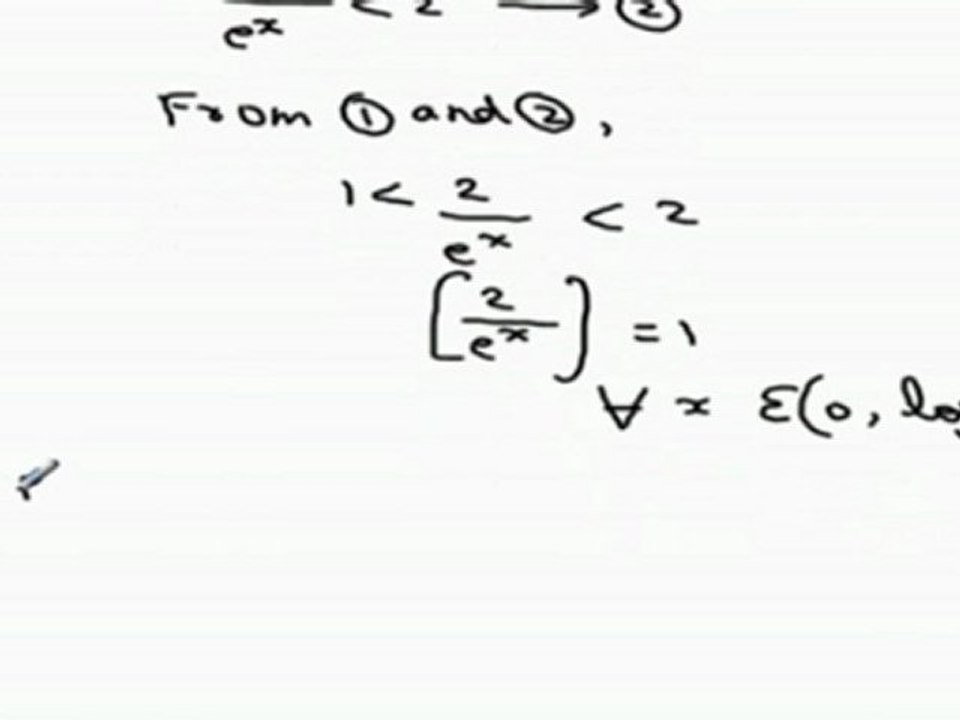 /eˣ < 2 → ②
From ① and ②,
1 < 2/eˣ < 2
[2/eˣ] = 1
∀ x ε(0, log